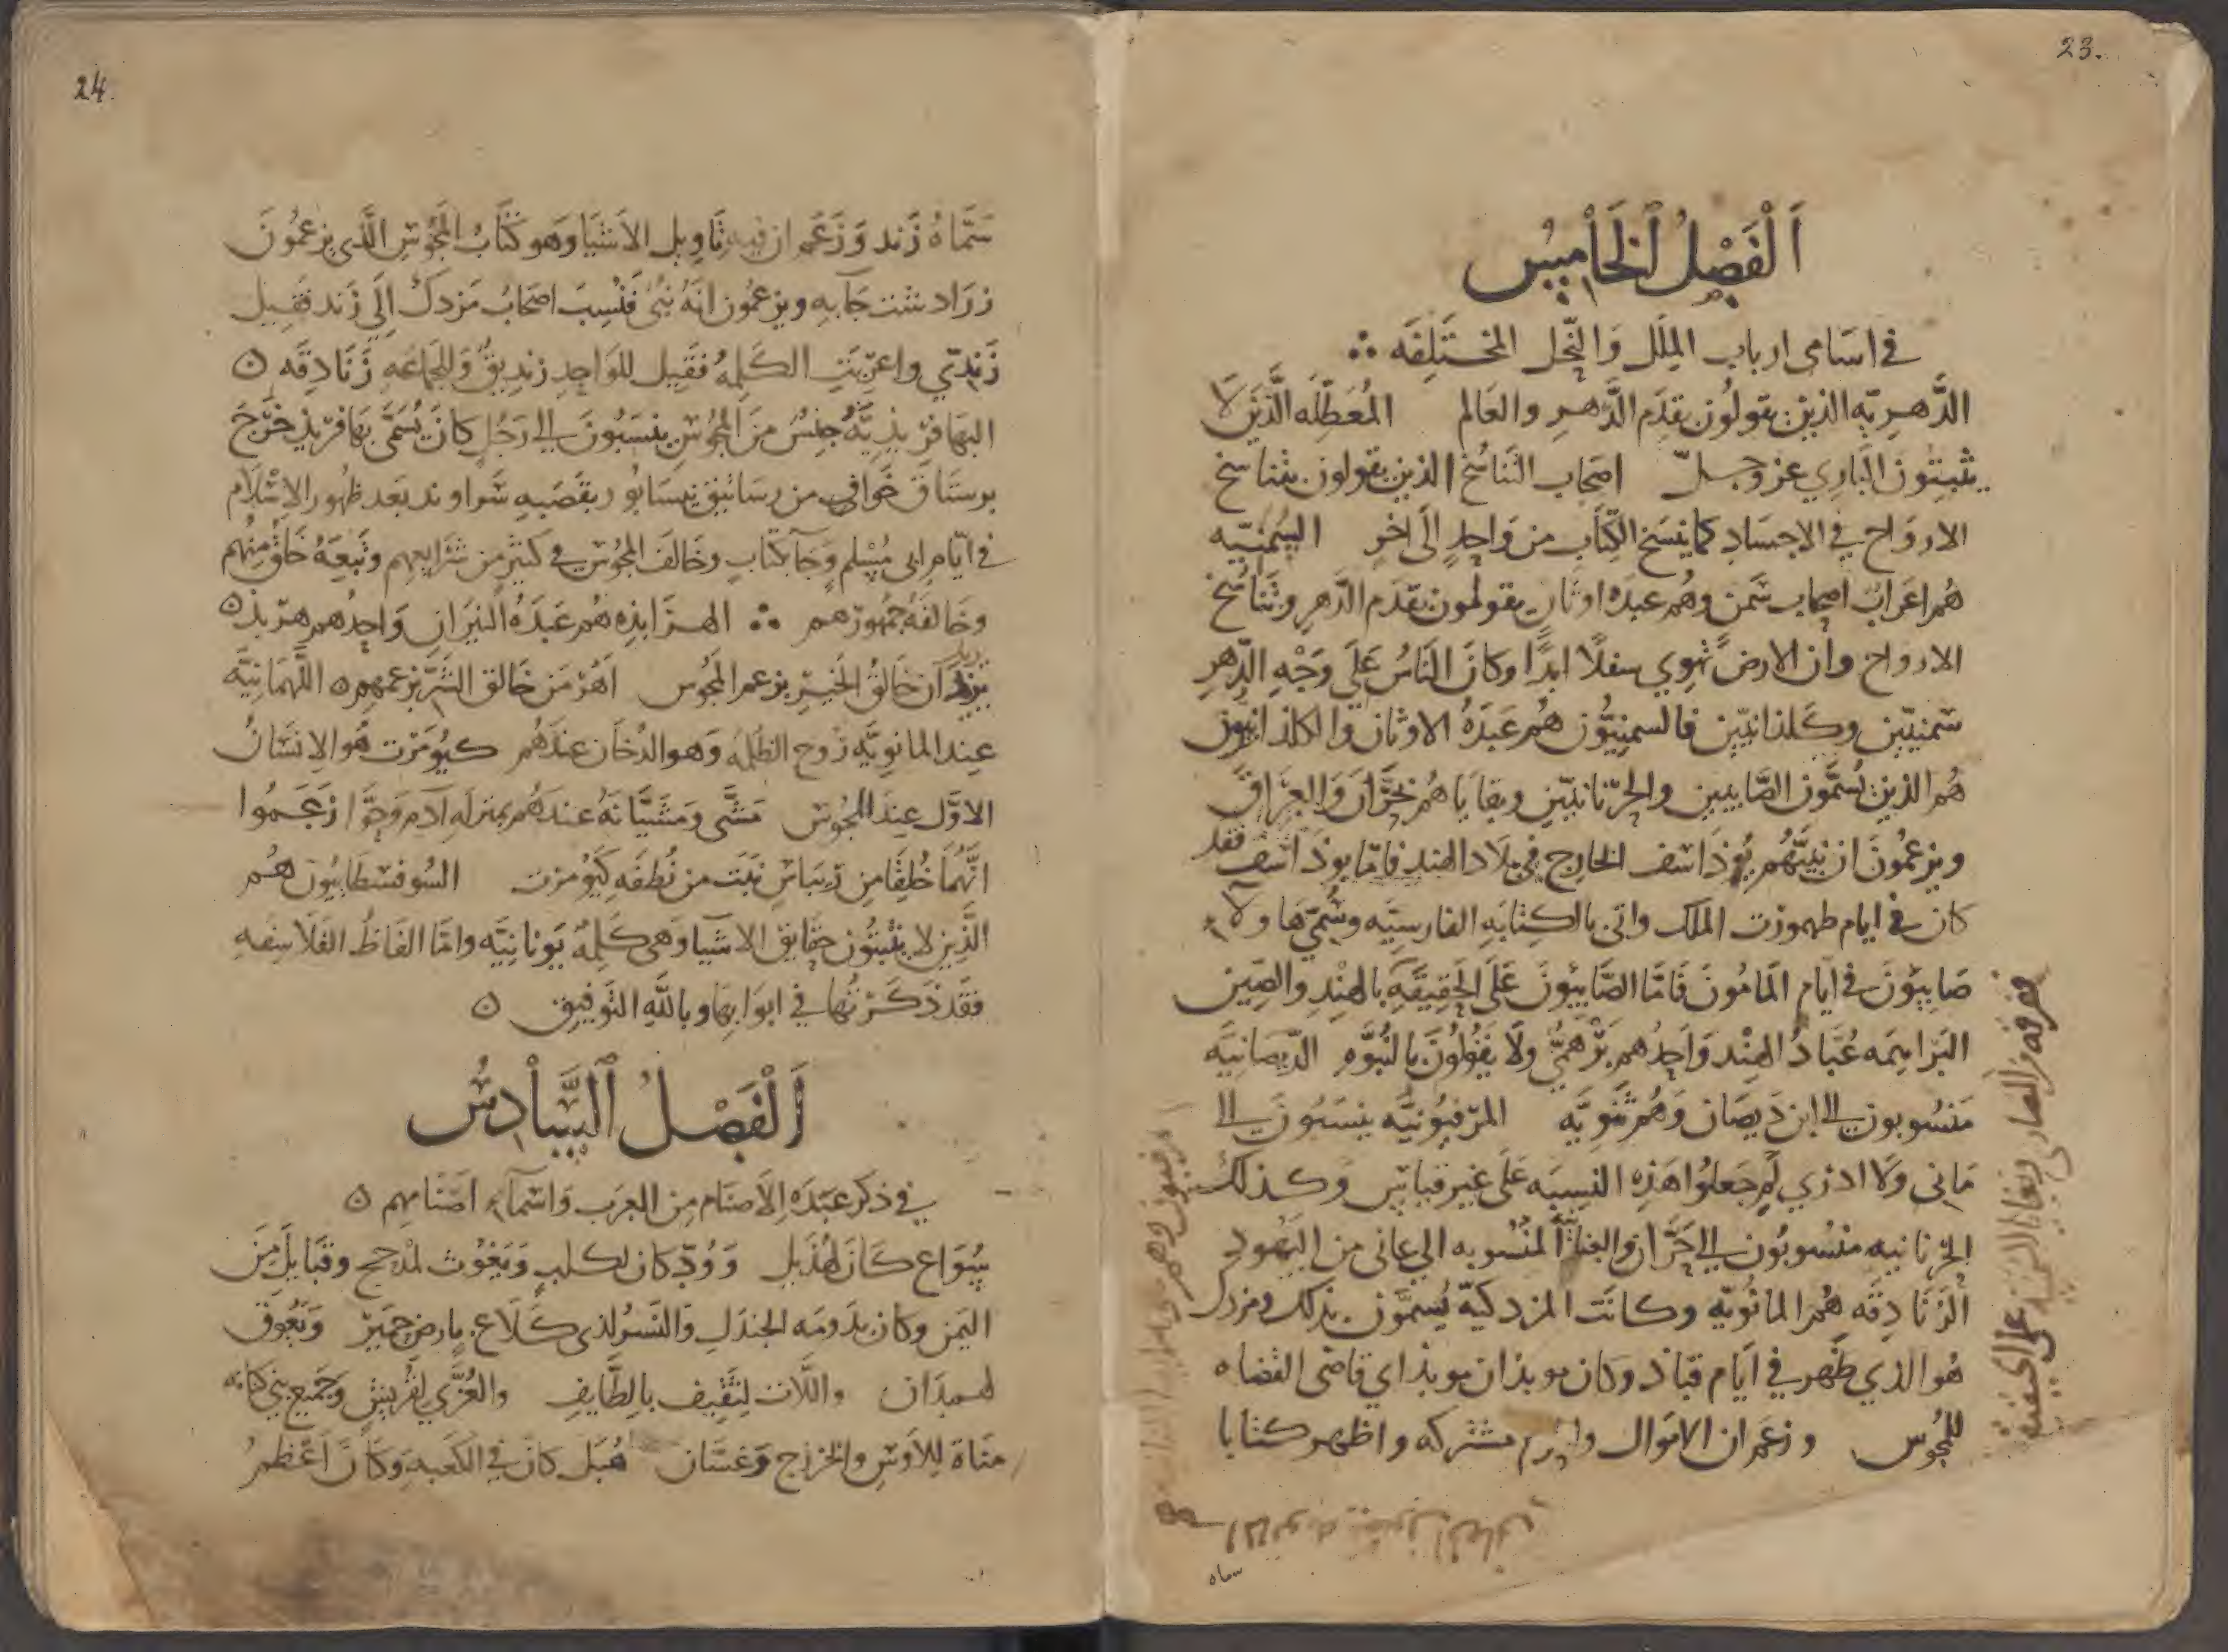 23.
اَلْفَصْلُ الْخَامِسُ
في اسَامي ارباب المِلَل وَالنِّحَل المختَلِفَه ∴
الدَّهرِيّه الذين يقولُون بقدَم الدَّهرِ والعَالم المُعَطِّلَه الَّذين لَا
يثبتُون البَارِي عز وجلّ اصحَاب التَنَاسُخ الذين يقولون بتناسخ
الاروَاح في الاجسَادِ كما ينسَخ الكِتَاب من وَاحدٍ الَى اخرِ السُمنيّه
هُم اعرَابُ اصحاب سَمن وهُم عبدَه اوثانٍ يقولُون بقدَم الدَّهرِ وتنَاسُخ
الارواح وان الارضَ تَهوي سفلًا ابدًا وكانَ النَاسُ عَلَى وَجْهِ الدَّهرِ
سَمنيّين وكَلذانيّين فالسمنيُّون هُم عَبَدَهُ الاوثان والكلذانيون
هُم الذين يُسَمَّون الصَّابيين والحرّنانيّين وبقايَا هُم بحَرَّانَ وَالعِرَاق
ويزعمُونَ ان نبيَّهُم بُوذَاسف الخارج في بلَاد الهند فامّا بوذَاسف فقد
كان في ايام طهمورت الملك واتى بالكِتابَهِ الفارسِيَّه وسُمّي هَاولَاء
صَابِيُونَ في ايّام المَامُونَ فَامَّا الصَّابِيُونَ عَلَى الحَقِيقَهِ بالهِنْدِ والصِّين
البَرَاهِمَه عُبَّادُ الهِنْد وَاحِدُهم بَرْهَميُّ ولَا يَقُولُونَ بالنُبُوَّهِ الدَّيصَانيَّه
مَنسُوبون الى ابن دَيصَان وَهُم ثنَويَّه المرقيُونيَّه ينسَبُونَ الى
مَاني وَلَا ادري لِمَ جَعلُوا هَذِهِ النِسبَه عَلَى غيرِ قيَاسٍ وكذلك
الحرّنانيه منسُوبُون الى حَرَّان والعَنَانيَّه المنسُوبه الي عاني من اليَهُودِ
الزَنَادِقَه هُمُ المانَويّه وكانَت المزدكيّه يُسمَّون بذلك ومزدك
هُو الذي ظَهر في ايّام قباذ وكان موبذان موبذ اي قاضى القضاه
للمجُوس وزعَم ان الاموال والحرم مشتركه واظهر كتابا
سماه
24.
سَمَّاهُ زَند وَزَعَم ان فيه تَاويل الاشيَا وَهو كتَابُ المَجُوسِ الَّذي يزعمُونَ
زرَادشت جَآ به ويزعمُون انّهُ نبيُّ فنُسِبَ اصحَابُ مَزدك الَي زَند فقيل
زَنديّ واعرّبَتِ الكَلِمهُ فَقِيل للوَاحِدِ زنديقٌ وَالجمَاعَهِ زَنَادِقَه ٥
البهَافرّيذيَّهُ جِنسٌ مِنَ المجُوسِ ينسَبُونَ الى رَجُلٍ كانَ يُسَمَّى بهَا فرّيذ خَرَجَ
برستَاق خَوَاف من رسَاتيق نيسَابُور بقَصَبهِ سَراوند بَعد ظهُور الاِسْلَام
في ايّامِ ابى مُسْلم وجَآ بكتَابٍ وخَالَفَ المجُوسَ في كثيرٍ من شَرَايعِهم وتَبعَهُ خَلقٌ مِنهُم
وخَالفَهُ جُمهُورُهم ∴ الهرَابذِه هُم عَبَدَهُ النيرَان وَاحِدُهم هِرْبذ ٥
يَزدَان خَالقُ الخَيرِ بزعمِ المجُوس اَهرُمَن خَالق الشَّرّ بزعمهِم ٥ اللَّهَمانيَّه
عِند المانويَّه رُوح الظُلمَه وَهو الدُخَان عندَهُم كيُومَرت هُو الاِنسَانُ
الاوَّل عِندَ المجُوس مَشَّى ومَشَيَّانَهُ عندَهُم بمنزلهِ ادَم وحَوَّا زعَمُوا
انَّهُمَا خُلِقَا مِن رِيبَاسٍ نبَت من نُطفَهِ كيُومَرت السُوفسطَايُونَ هُم
الَّذِين لا يثبتُون حقَايق الاشيَا وَهي كَلِمهُ يُونَانيَّه وامَّا الفَاظُ الفَلَاسِفَهِ
فقَد ذكَرتُها في ابوَابِهَا وباللّهِ التَّوفيق ٥
اَلْفَصْلُ السَّادِسُ
في ذكر عبَدَه الاَصنَام من العرَب وَاسْمَآء اصْنَامِهم ٥
سُوَاع كَانَ لهُذَيل وَوُدّ كان لكلبٍ وَيَغُوث لمذحج وقبَايلَ مِنَ
اليَمن وكانَ بدَومَه الجندَلِ والنَّسرُ لذى كَلَاعٍ بارضِ حِميَرَ وَيَعُوق
لهمدَان واللَّات لثَقيف بالطَّايف والعُزَّي لقُريشٍ وَجَميع بني كنانه
مَنَاة للاَوسِ والخزرج وَغسَّان هُبَل كانَ في الكَعبَهِ وكَانَ اَعْظم